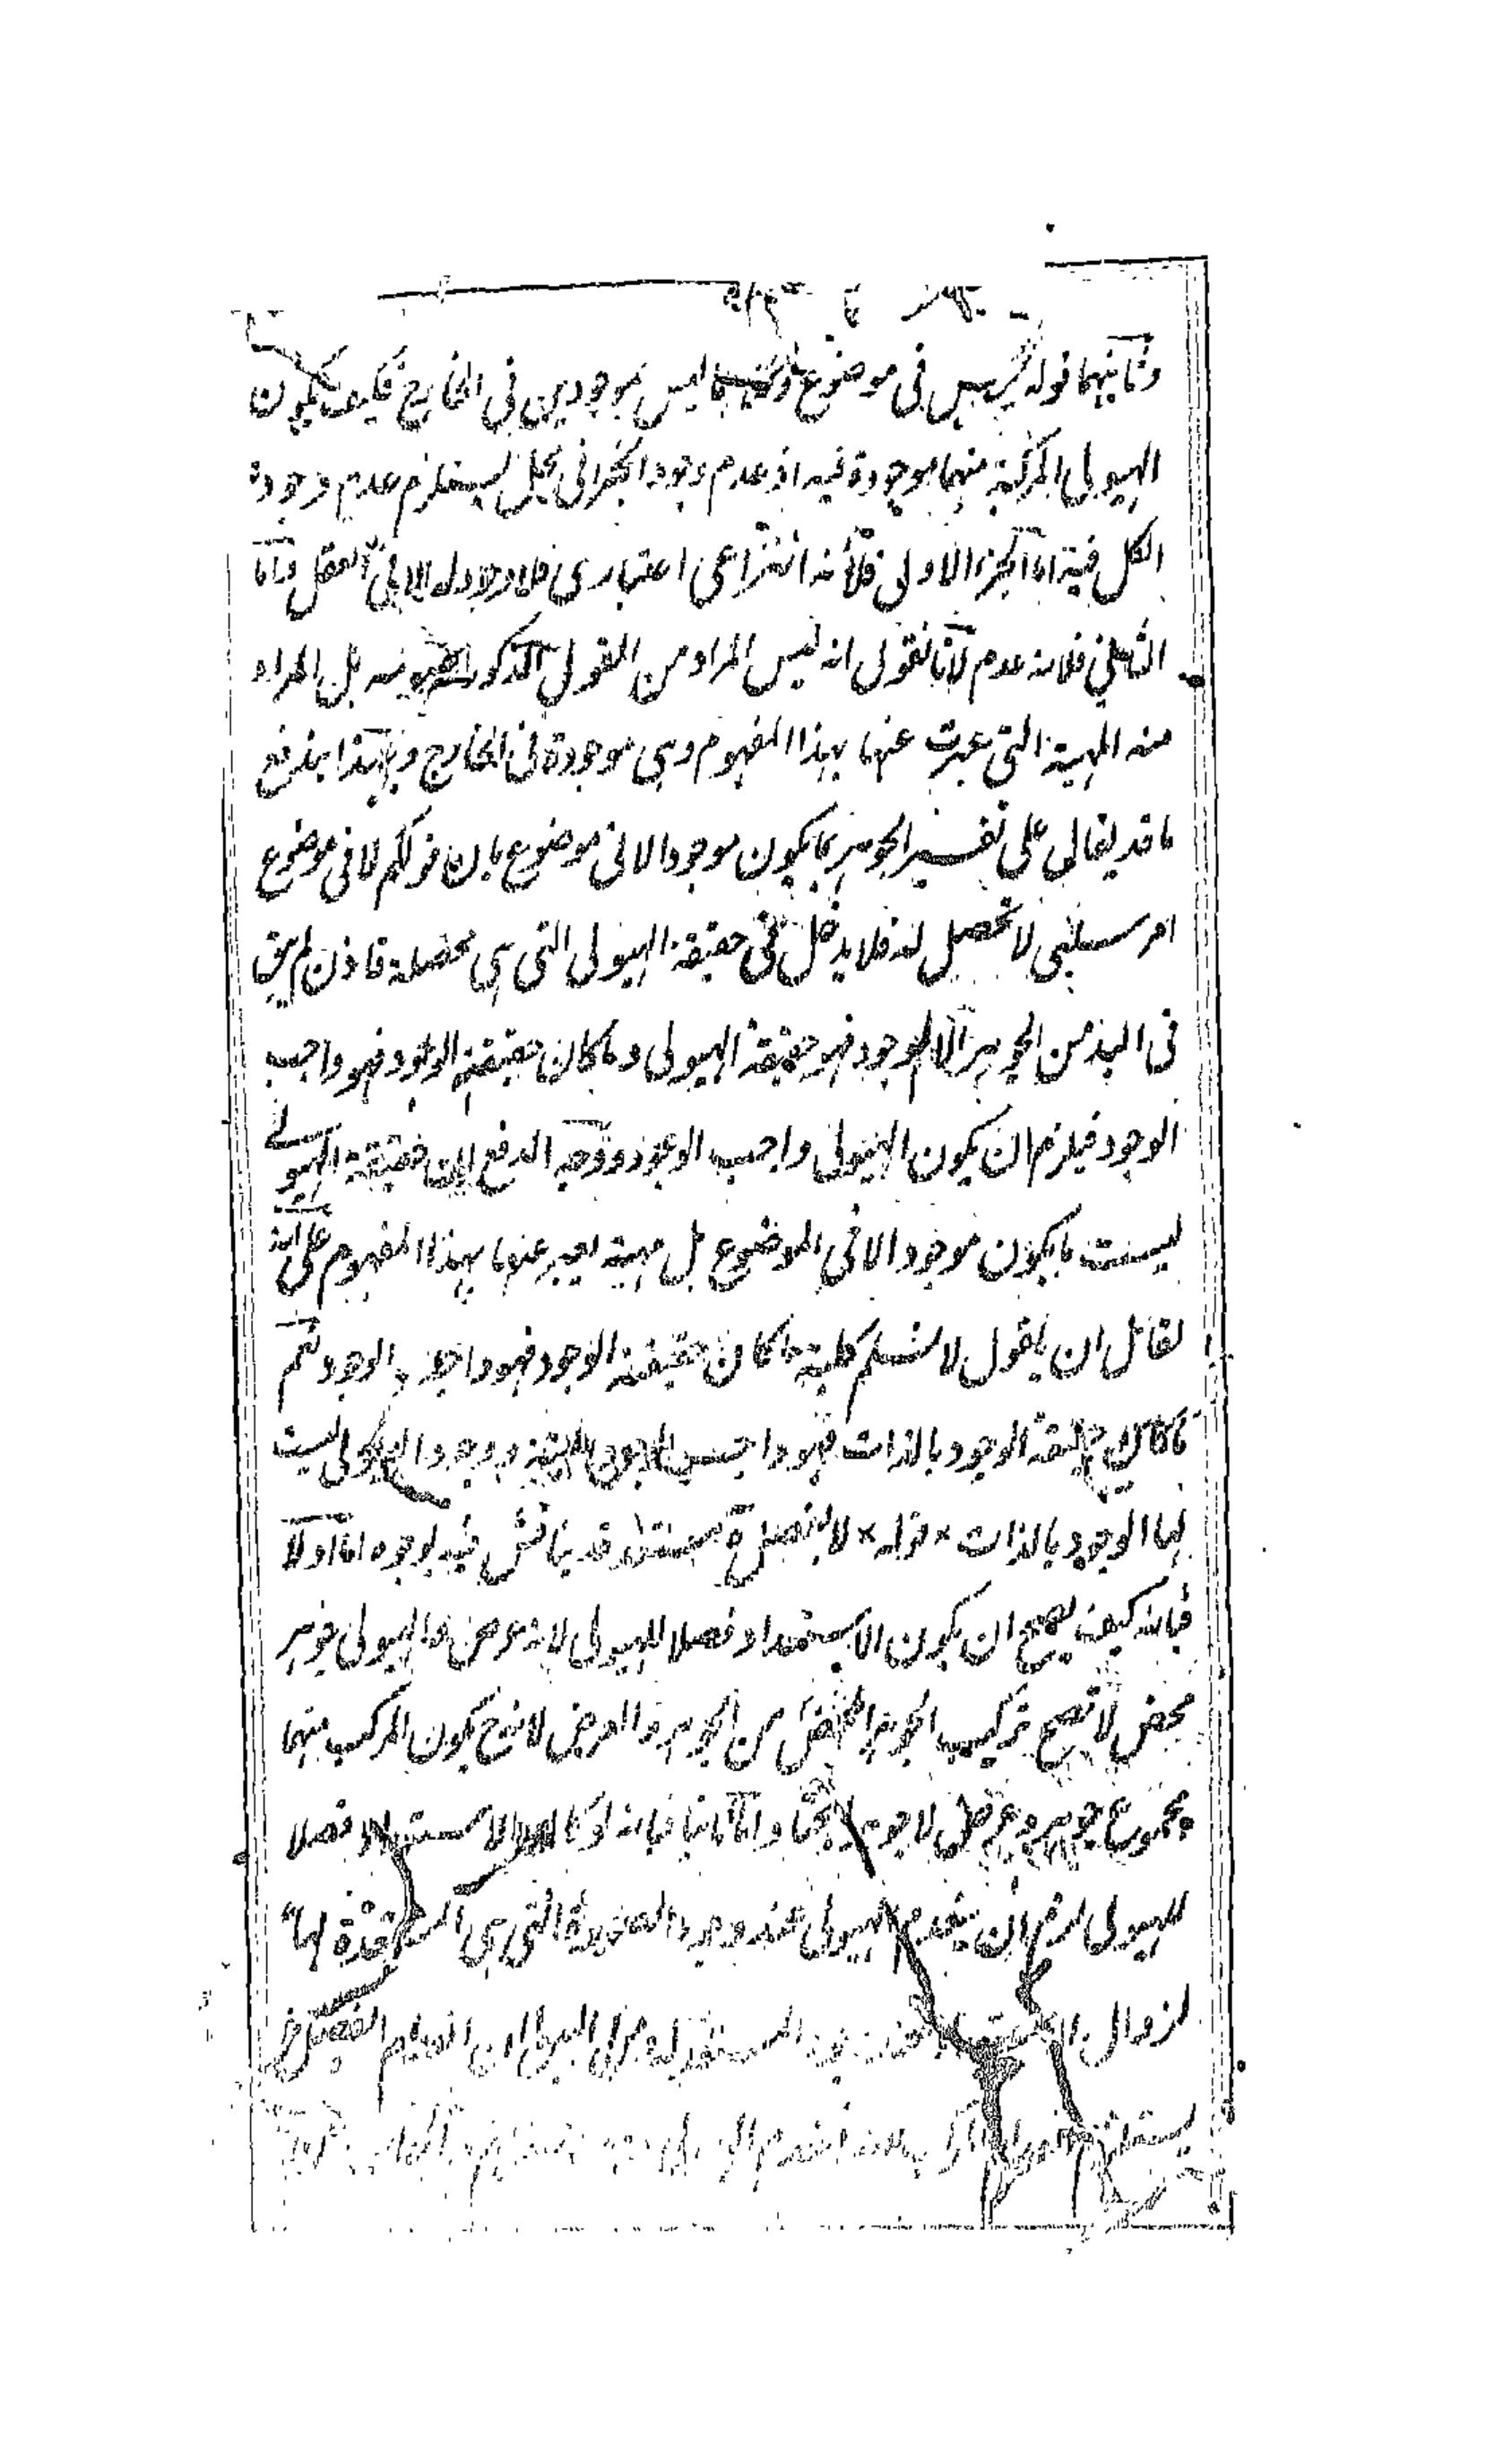 وثانيهما قوله ليس في موضوع وكلاهما ليس بموجودين في الخارج فكيف يكون
الهيولى المركبة منهما موجودة فيه اذ عدم وجود الجزء في محل يستلزم عدم وجود
الكل فيه اما الجزء الاول فلأنه انتزاعي اعتباري فلا وجود له الا في العقل واما
الثاني فلانه عدم لانا نقول انه ليس المراد من القول المذكور مفهومه بل المراد
منه المهية التي عبرت عنها بهذا المفهوم وهي موجودة في الخارج وبهذا يندفع
ما قد يقال على تفسير الجوهر بما يكون موجودا لا في موضوع بان قولكم لا في موضوع
امر سلبي لا تحصل له فلا يدخل في حقيقة الهيولى التي هي محصلة فاذن لم يبق
في اليد من الجوهر الا الموجود فهو حقيقة الهيولى وما كان حقيقته الوجود فهو واجب
الوجود فيلزم ان يكون الهيولى واجب الوجود ووجه الدفع ان حقيقة الهيولى
ليست ما يكون موجودا لا في الموضوع بل مهية يعبر عنها بهذا المفهوم على انه
لقائل ان يقول لا نسلم كلية ما كان حقيقته الوجود فهو واجب الوجود نعم
ما كان حقيقته الوجود بالذات فهو واجب الوجود البتة ووجود الهيولى ليست
لها الوجود بالذات * قوله * لا بفصل قد يناقش فيه بوجوه اما اولا
فبانه كيف يصح ان يكون الاستعداد فصلا للهيولى لانه عرض والهيولى جوهر
محض لا يصح تركيب الجوهر المحض من الجوهر والعرض لانه ح يكون المركب منهما
مجموع جوهر وعرض لا جوهرا بحتا واما ثانيا فبانه لو كان الاستعداد فصلا
للهيولى لزم ان ينعدم الهيولى عند وجود الصورة التي هي المستعدة لها
لزوال الاستعداد عند المستعد له ومن البين ان انعدام الفصل
يستلزم